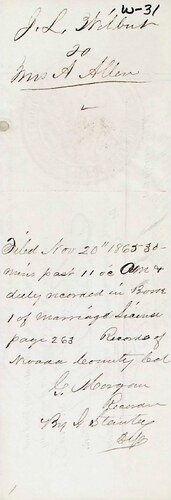 W-31
J. L. Wilbut
to
Mrs A Allen
Filed Nov 20" 1865 30
mins past 11 oc A M &
duly recorded in Book
1 of Marriage License
page 263 Records of
Nevada County Cal
Morgan
Recorder
By